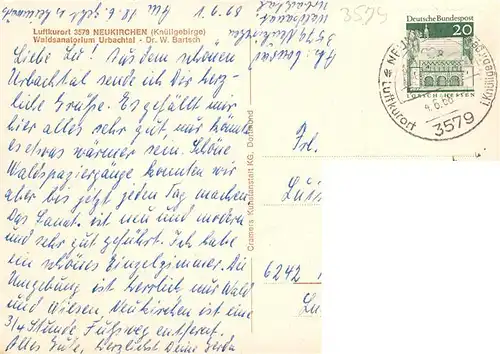 Luftkurort 3579 NEUKIRCHEN (Knüllgebirge)
Waldsanatorium Urbachtal - Dr. W. Bartsch
1.6.68
Liebe Lu! Aus dem schönen
Urbachtal sende ich Dir herz-
liche Grüße. Es gefällt mir
hier alles sehr gut, nur könnte
es etwas wärmer sein. Schöne
Waldspaziergänge konnten wir
aber bis jetzt jeden Tag machen.
Das Sanat. ist neu und modern
und sehr gut geführt. Ich habe
ein schönes Einzelzimmer. Die
Umgebung ist herrlich nur Wald
und Wiesen. Neukirchen ist eine
3/4 Stunde Fußweg entfernt.
Alles Gute, herzlichst Deine Gerda
Cramers Kunstanstalt KG, Dortmund
3579
Deutsche Bundespost
20
LORSCH · HESSEN
Luftkurort
3579
Frl.
6242